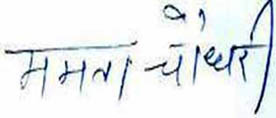 ममता चौधरी